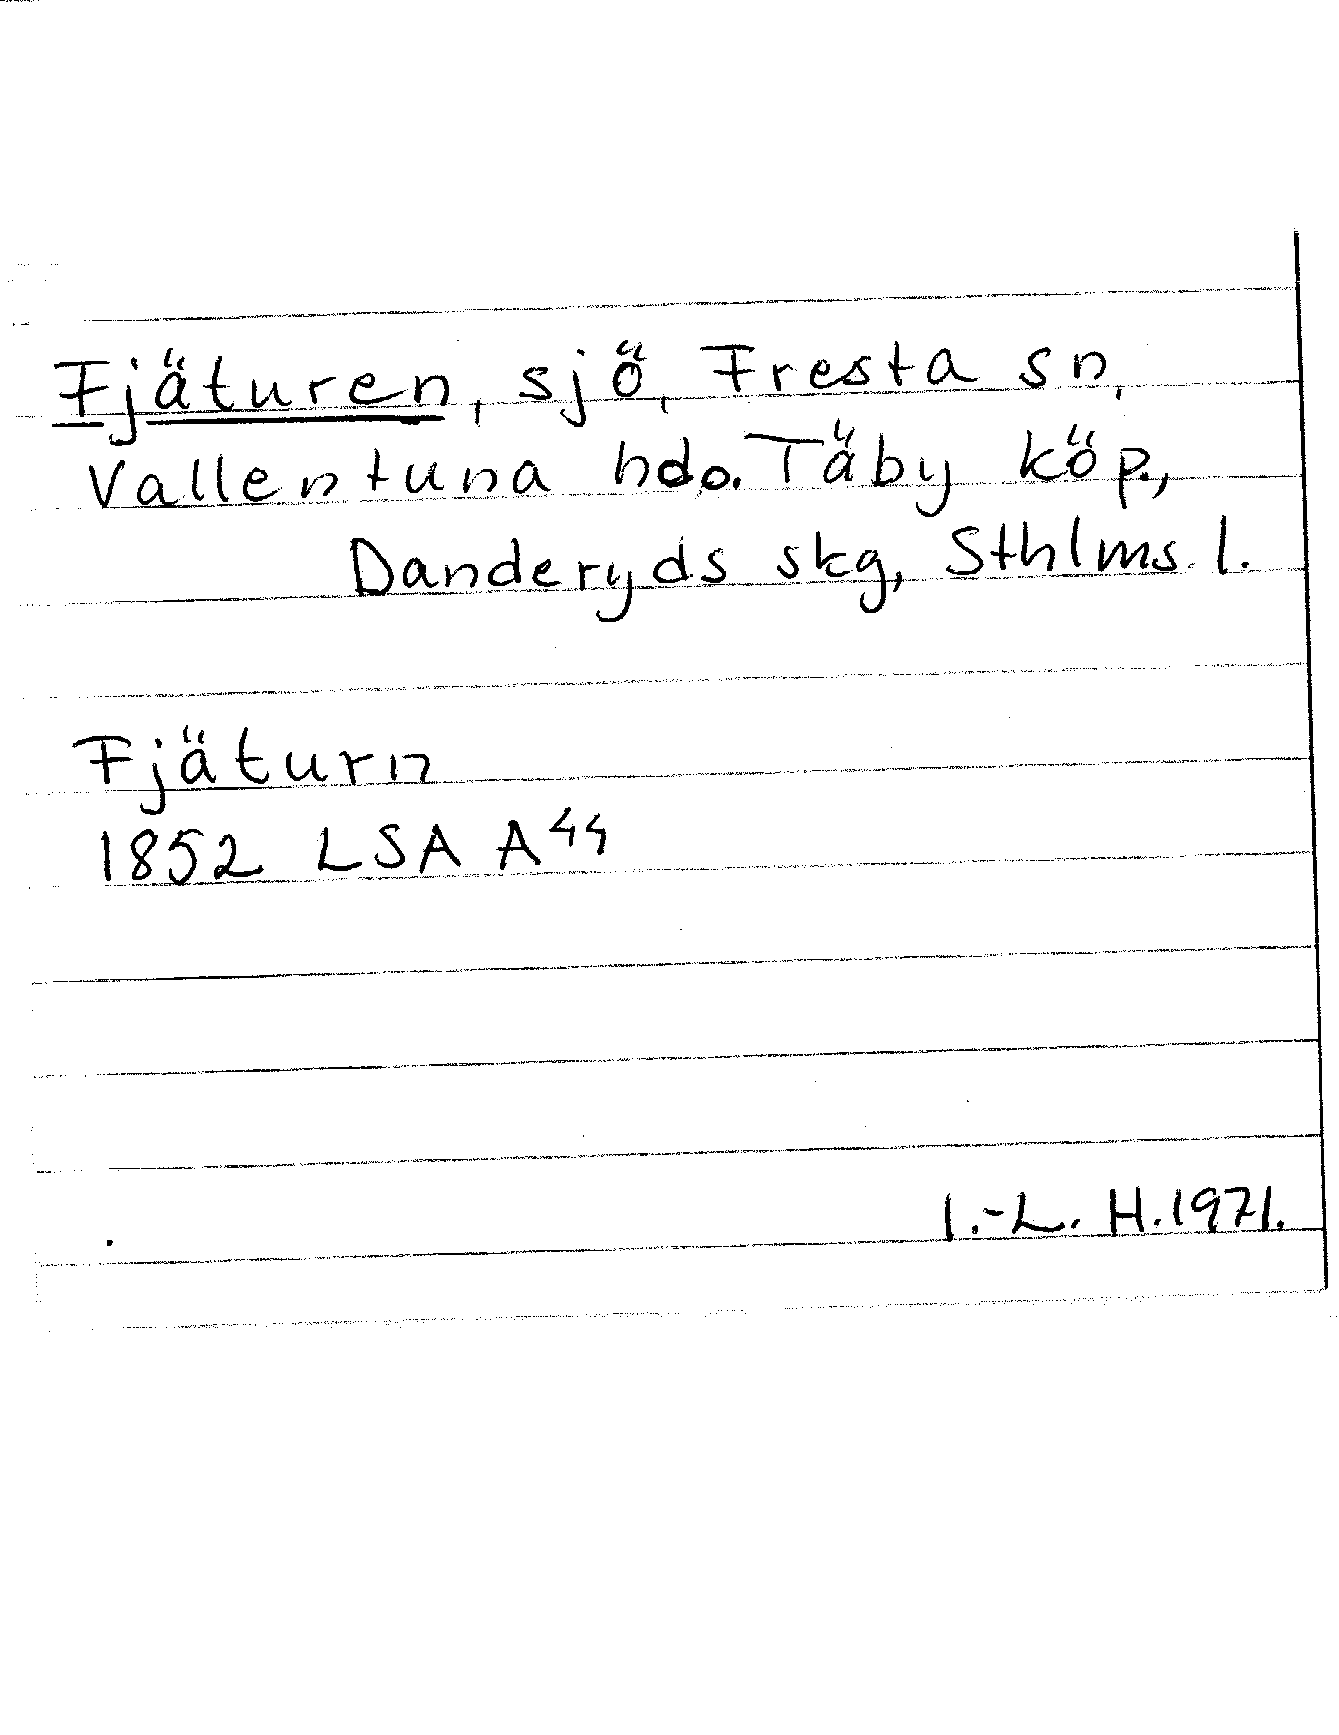 Fjäturen, sjö, Fresta sn,
Vallentuna hdo. Täby köp.,
Danderyds skg, Sthlms. l.
Fjäturn
1852 LSA A44
I.-L. H. 1971.